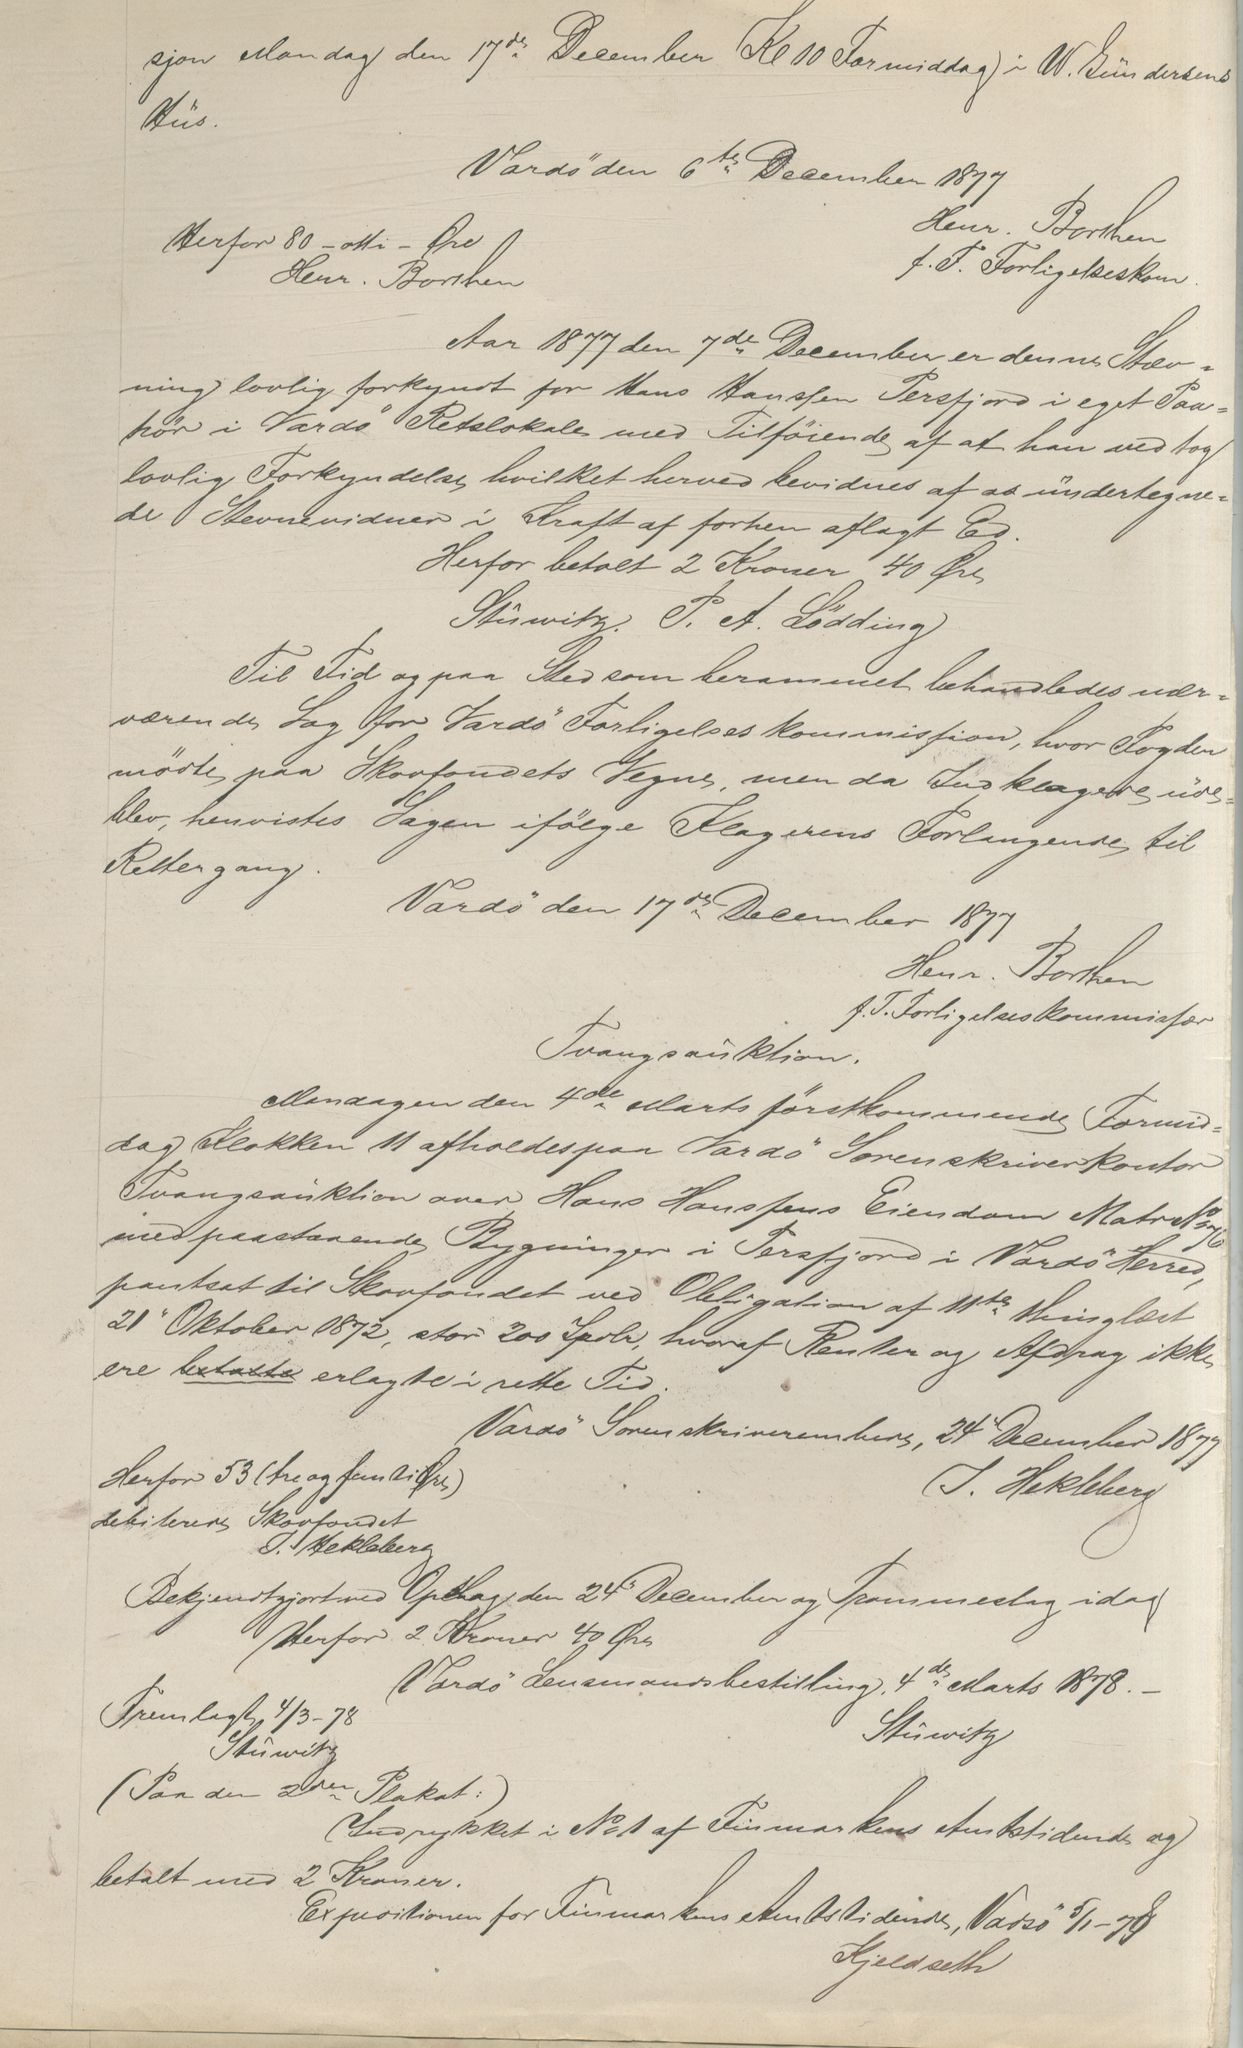 sjon Mandag den 17de December (Kl 10 Formiddag) i W. Gündersens
Hüs.
Vardö den 6te December 1877
Henr. Borchen
f. T. Forligelseskom.
Herfor 80 - otti - Øre
Henr. Borchen
Aar 1877 den 7de December er denne Stæv-
ning lovlig forkyndt for Hans Hanssen Persfjord i eget Paa-
hör i Vardö Retslokale med Tilföiende af at han vedtog
lovlig Forkyndelse, hvilket herved bevidnes af os ündertegne-
de Stevnevidner i Kraft af forhen aflagt Ed.
Herfor betalt 2 Kroner 40 Øre
Stüwitz. P. A. Lödding
Til Tid og paa Sted som berammet behandledes nær-
værende Sag for Vardö Forligelseskommission, hvor Fogden
mödte paa Skovfondets Vegne, men da Indklagede üde-
blev, henvistes Sagen ifölge Klagerens Forlangende til
Rettergang.
Vardö den 17de December 1877
Henr. Borchen
f. T. Forligelseskommissær
Tvangsaüktion.
Mandagen den 4de Marts förstkommende Formid-
dag Klokken 11 afholdes paa Vardö Sorenskriverkontor
Tvangsaüktion over Hans Hanssens Eiendom Matr No 76
med paastaaende Bygninger i Persfjord i Vardö Herred,
pantsat til Skovfondet ved Obligation af 11te thinglæst
21' Oktober 1872, stor 200 Spdlr, hvoraf Renter og Afdrag ikke
ere betalte erlagte i rette Tid.
Vardö Sorenskriverembede, 24' December 1877
J. Hekleberg
Herfor 53 (tre og femti Øre)
debiteres Skovfondet
J. Hekleberg
Bekjendtgjort ved Opslag den 24' December og Trommeslag idag
Herfor 2 Kroner 40 Øre
Vardö Lensmandsbestilling, 4de Marts 1878. -
Stüwitz
Fremlagt 4/3 - 78
Stüwitz
(Paa den 2den Plakat:)
Indrykket i No 1 af Finmarkens Amtstidende og
betalt med 2 Kroner.
Expeditionen for Finmarkens Amtstidende, Vadsö 5/1 - 78
Kjeldseth